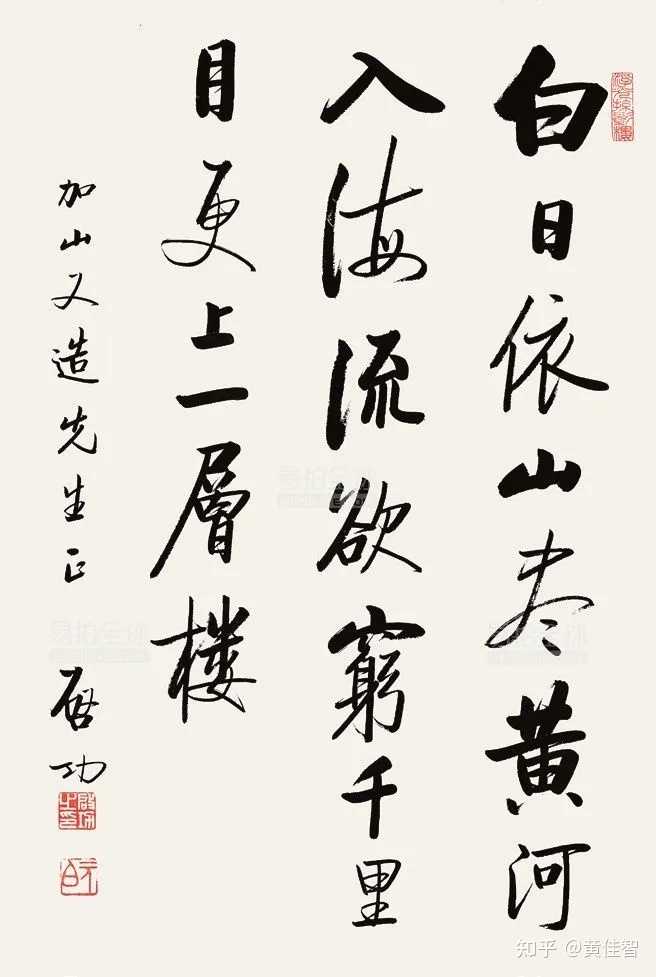 白日依山尽黄河
入海流欲窮千里
目更上一層楼
加山又造先生正
启功
启功之印
元白
知乎 @黄佳智